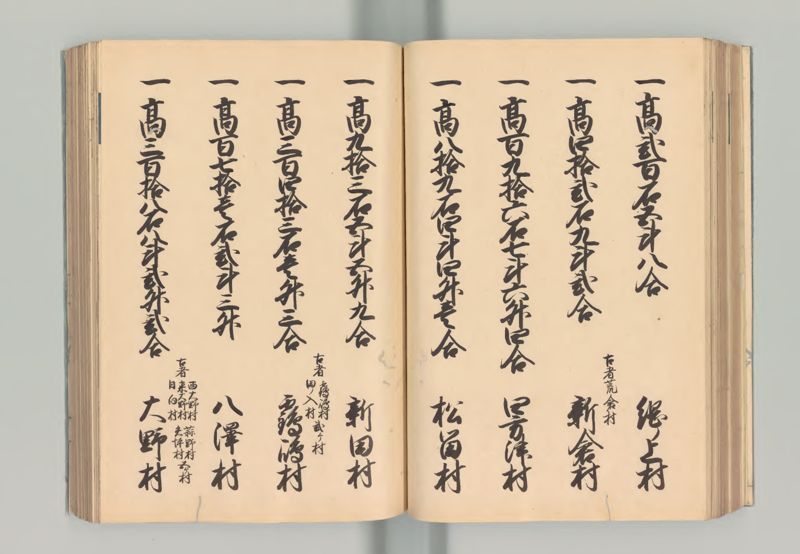 一高弐百石五斗八合 綱上村
一高四拾弐石九斗弐合 古者荒倉村 新倉村
一高百九拾六石七斗六升四合 四方津村
一高八拾九石四斗四升壱合 松留村
一高九拾三石五斗五升九合 新田村
一高三百四拾三石壱升三合 古者 靏嶋村 田ノ入村 弐ヶ村 靏嶋村
一高百七拾壱石弐斗三升 八澤村
一高三百拾八石八斗弐升弐合 古者 西大野村 東大野村 日向村 蒜野村 矢坪村 五ヶ村 大野村